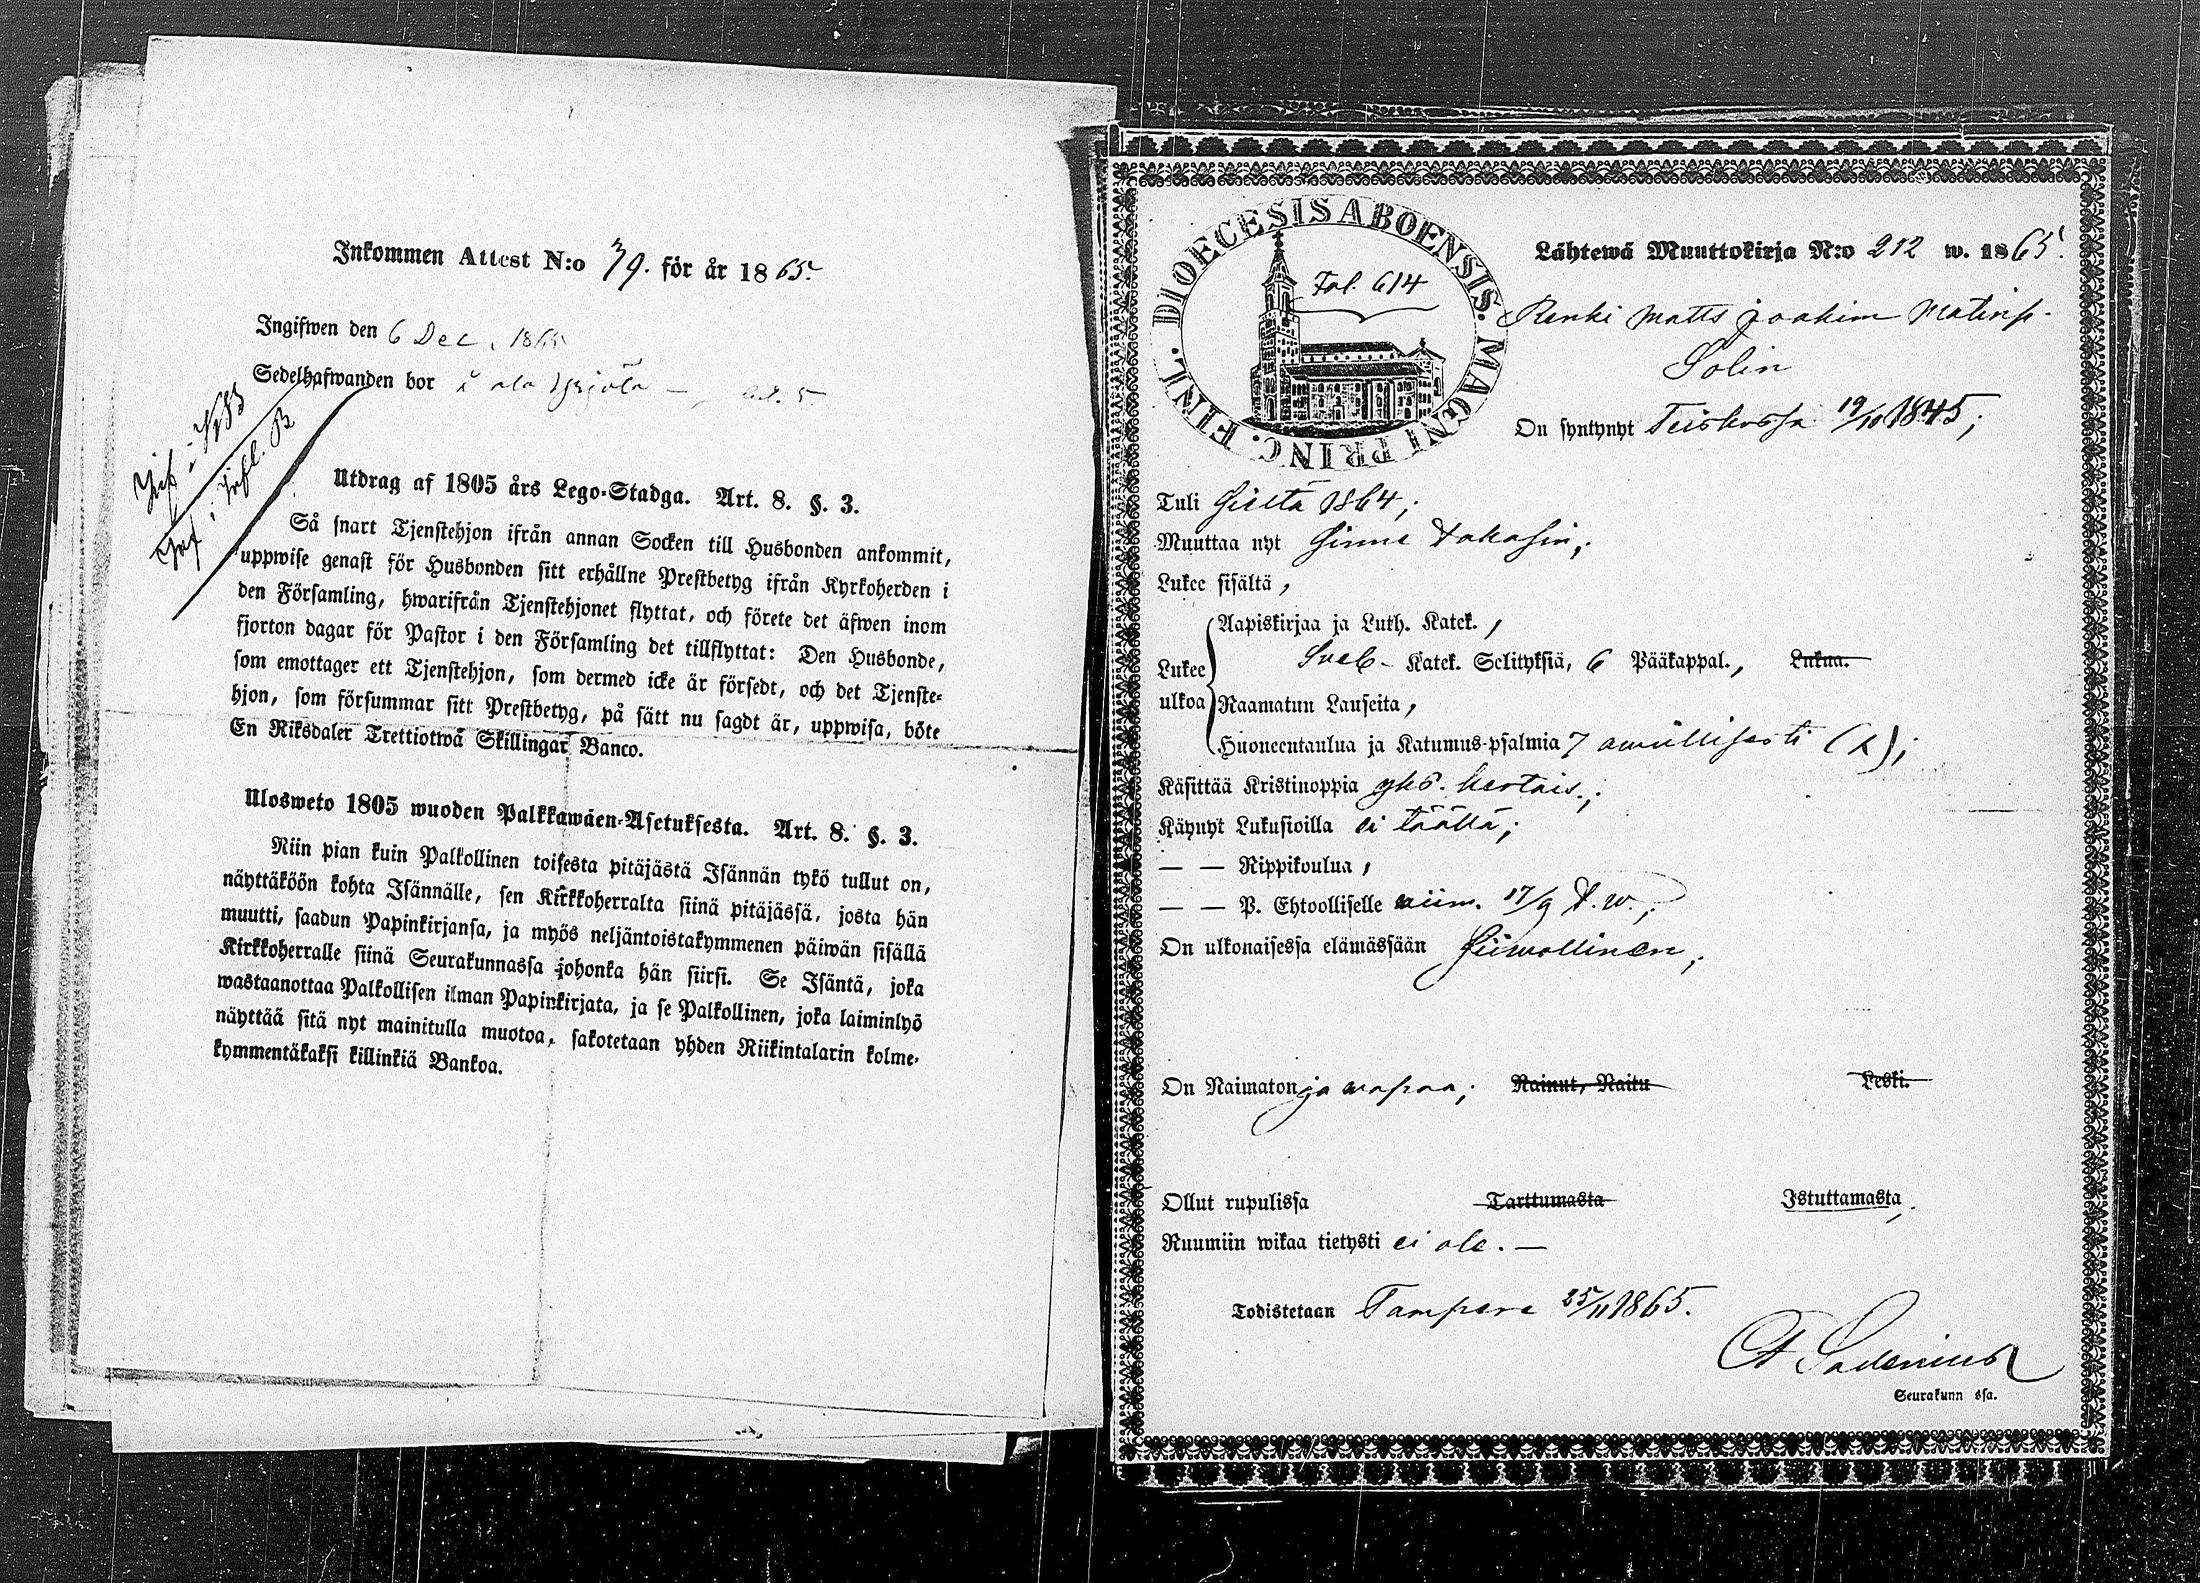 Inkommen Attest N:o 39. för år 1865.
Ingifwen den 6 Dec. 1865
Sedelhafwanden bor å ala Yrjölä
Utdrag af 1805 års Lego-Stadga. Art. 8. §. 3.
Så snart Tjenstehjon ifrån annan Socken till Husbonden ankommit,
uppwise genast för Husbonden sitt erhållne Prestbetyg ifrån Kyrkoherden i
den Församling, hwarifrån Tjenstehjonet flyttat, och förete det äfwen inom
fjorton dagar för Pastor i den Församling det tillflyttat: Den Husbonde,
som emottager ett Tjenstehjon, som dermed icke är försedt, och det Tjenste-
hjon, som försummar sitt Prestbetyg, på sätt nu sagdt är, uppwisa, böte
En Riksdaler Trettiotwå Skillingar Banco.
Ulosweto 1805 wuoden Palkkawäen-Asetuksesta. Art. 8. §. 3.
Niin pian kuin Palkollinen toisesta pitäjästä Isännän tykö tullut on,
näyttäköön kohta Isännälle, sen Kirkkoherralta siinä pitäjässä, josta hän
muutti, saadun Papinkirjansa, ja myös neljäntoistakymmenen päiwän sisällä
Kirkkoherralle siinä Seurakunnassa johonka hän siirsi. Se Isäntä, joka
wastaanottaa Palkollisen ilman Papinkirjata, ja se Palkollinen, joka laiminlyö
näyttää sitä nyt mainitulla muotoa, sakotetaan yhden Riikintalarin kolme-
kymmentäkaksi killinkiä Bankoa.
DIOECESIS ABOENSIS. MAGNI PRINC. FINL.
Fol. 614
Lähtewä Muuttokirja N:o 212 w. 1865.
Renki Matts Joakim Matinp.
Solin
On syntynyt Teiskossa 19/10 1845;
Tuli sieltä 1864;
Muuttaa nyt sinne takasin;
Lukee sisältä,
Aapiskirjaa ja Luth. Katek.,
Lukee Sveb- Katek. Selityksiä, 6 Pääkappal., Lukua.
ulkoa Raamatun Lauseita,
Huoneentaulua ja Katumus-psalmia 7 awullisesti (x);
Käsittää Kristinoppia yks. kertais.;
Käynyt Lukusioilla ei täällä;
— — Rippikoulua,
— — P. Ehtoolliselle wiim. 17/9 t. w.;
On ulkonaisessa elämässään siiwollinen;
On Naimaton ja wapaa; Nainut, Naitu Leski.
Ollut rupulissa Tarttumasta Istuttamasta,
Ruumiin wikaa tietysti ei ole. —
Todistetaan Tampere 25/11 1865.
Sadenius
Seurakunn ssa.